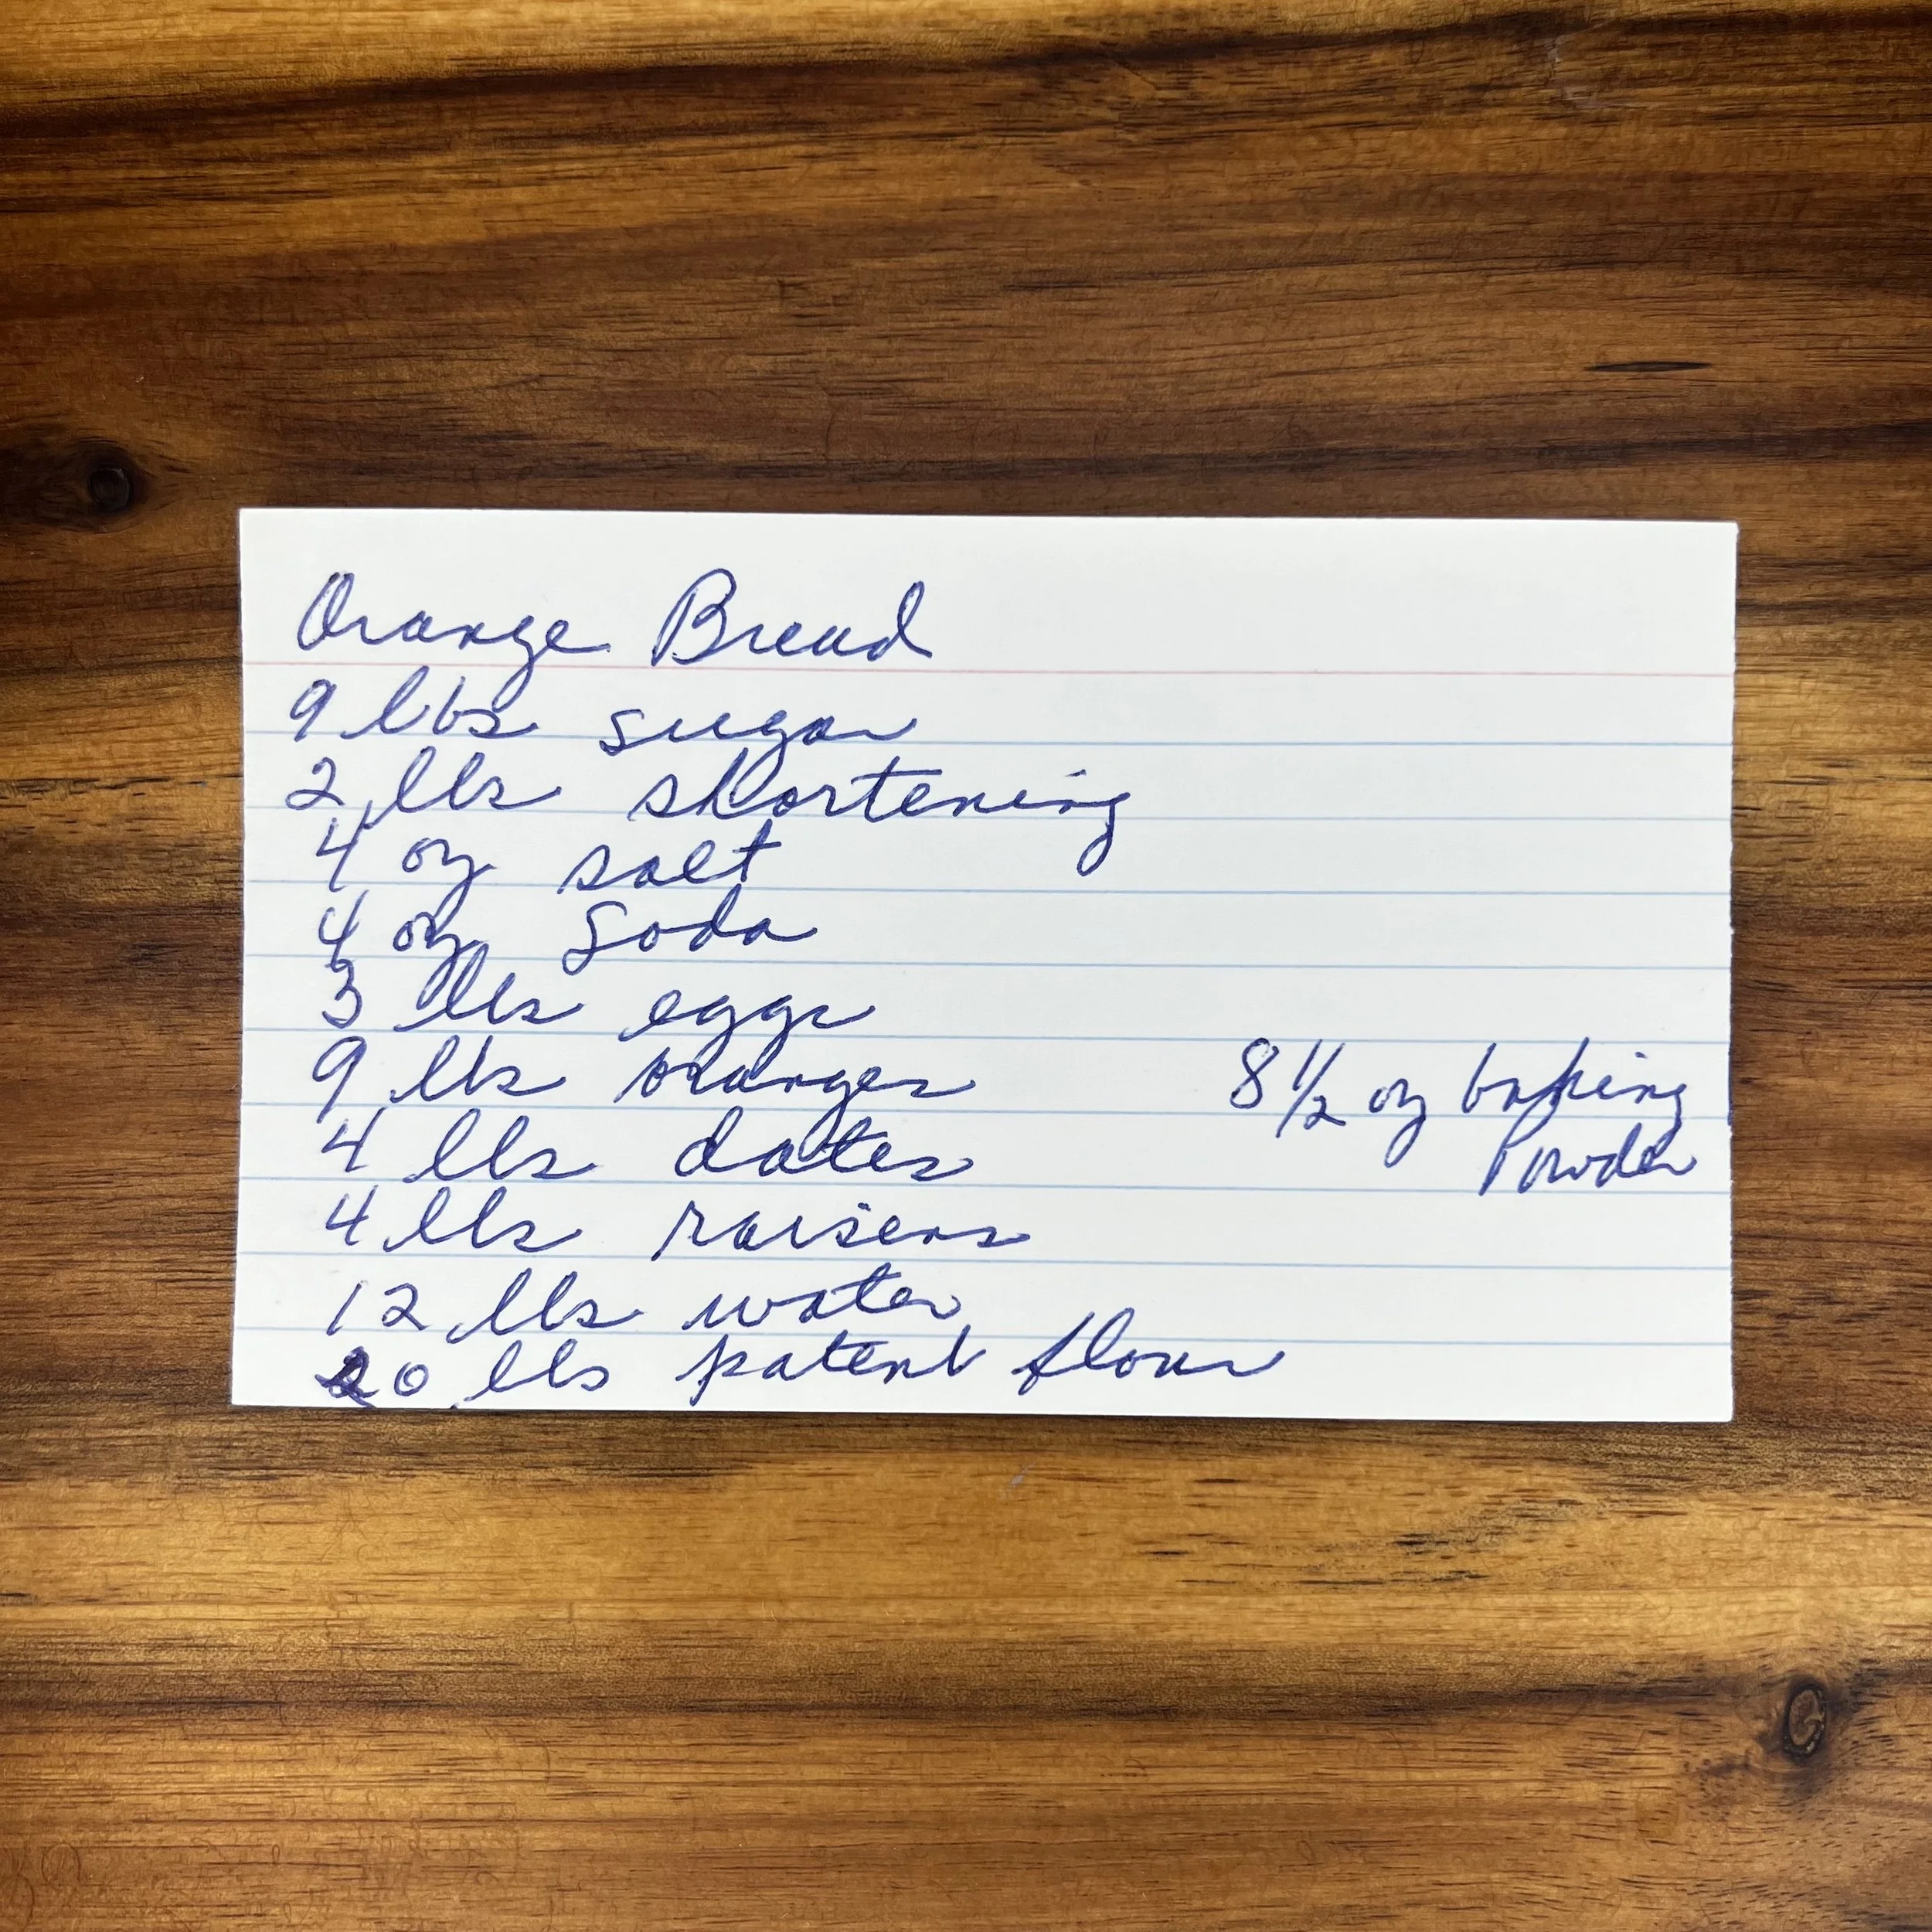 Orange Bread
9 lbs sugar
2 lbs shortening
4 oz salt
4 oz Soda
3 lbs eggs
9 lbs oranges
8 1/2 oz baking
Powder
4 lbs dates
4 lbs raisens
12 lbs water
20 lbs patent flour